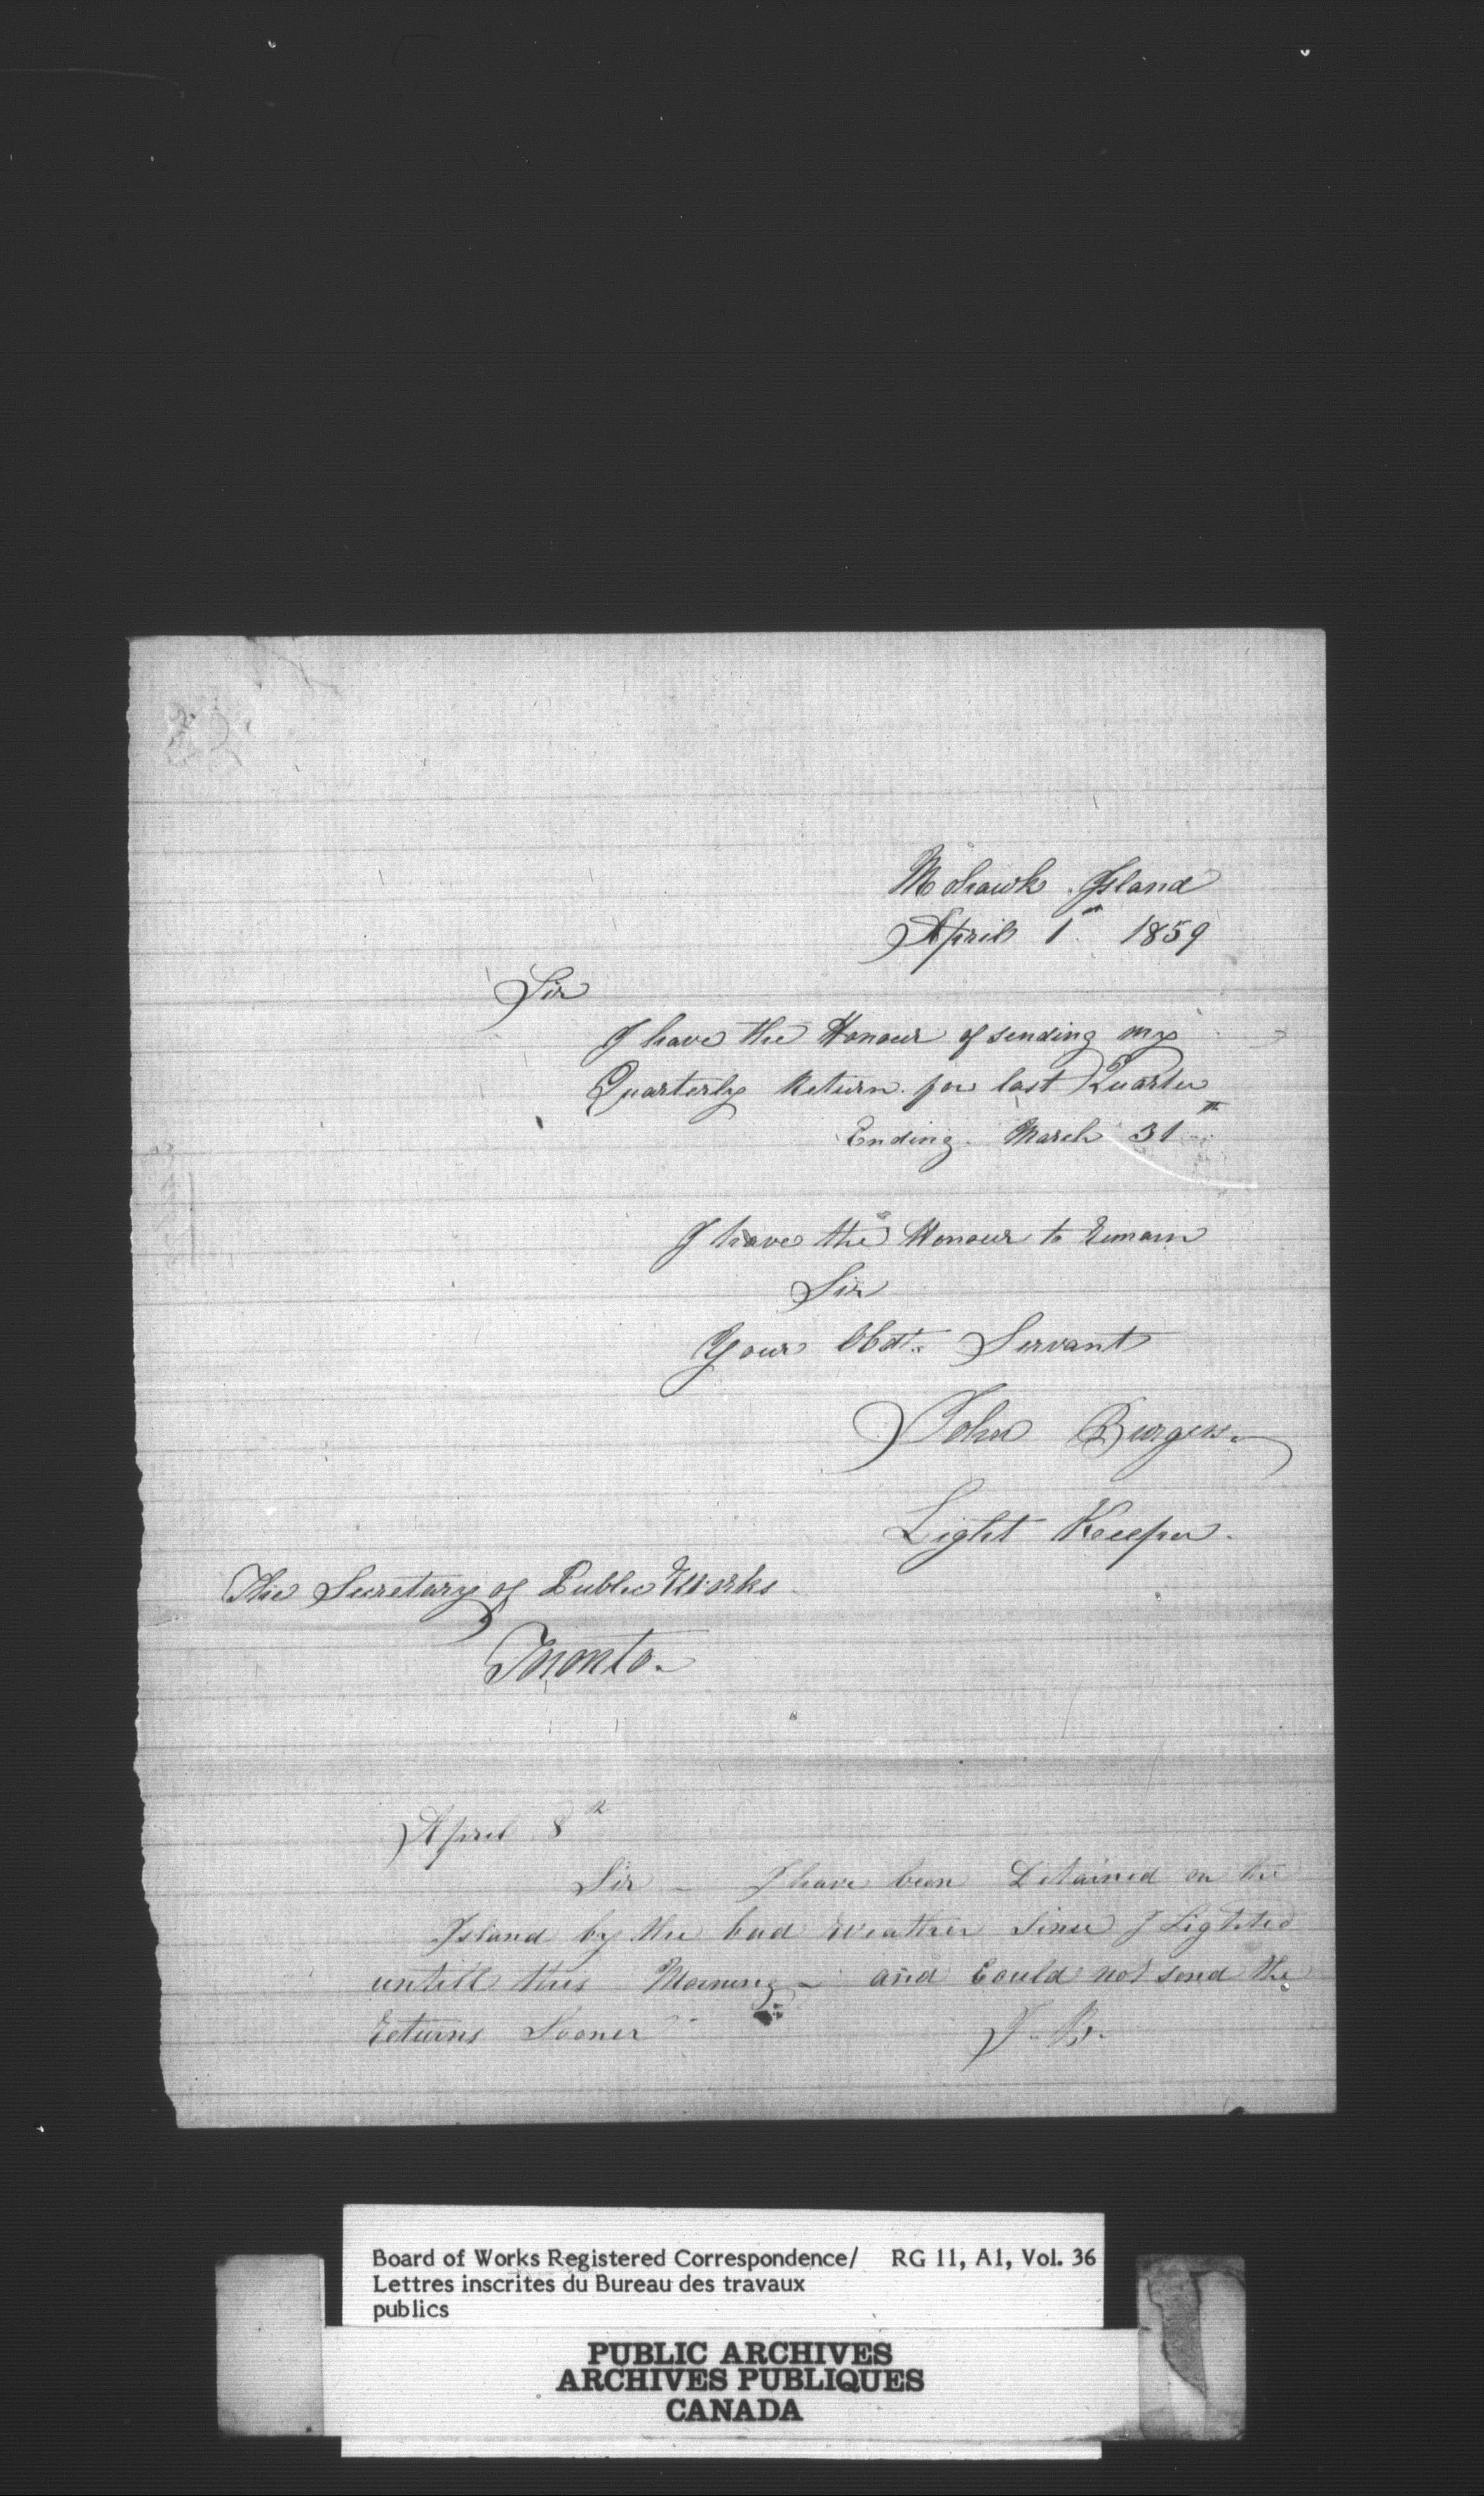 Mohawk Island
April 1st 1859
Sir
I have the Honour of sending my
Quarterly Return for last Quarter
Ending March 31st
I have the Honour to remain
Sir
Your Obdt. Servant
John Burgess
Light Keeper.
The Secretary of Public Works
Toronto.
April 8th
Sir - I have been Detained on the
Island by the bad Weather Since I Lighted
untill this Morning - and Could not send the
returns Sooner
J. B.
Board of Works Registered Correspondence/ RG 11, A1, Vol. 36
Lettres inscrites du Bureau des travaux
publics
PUBLIC ARCHIVES
ARCHIVES PUBLIQUES
CANADA